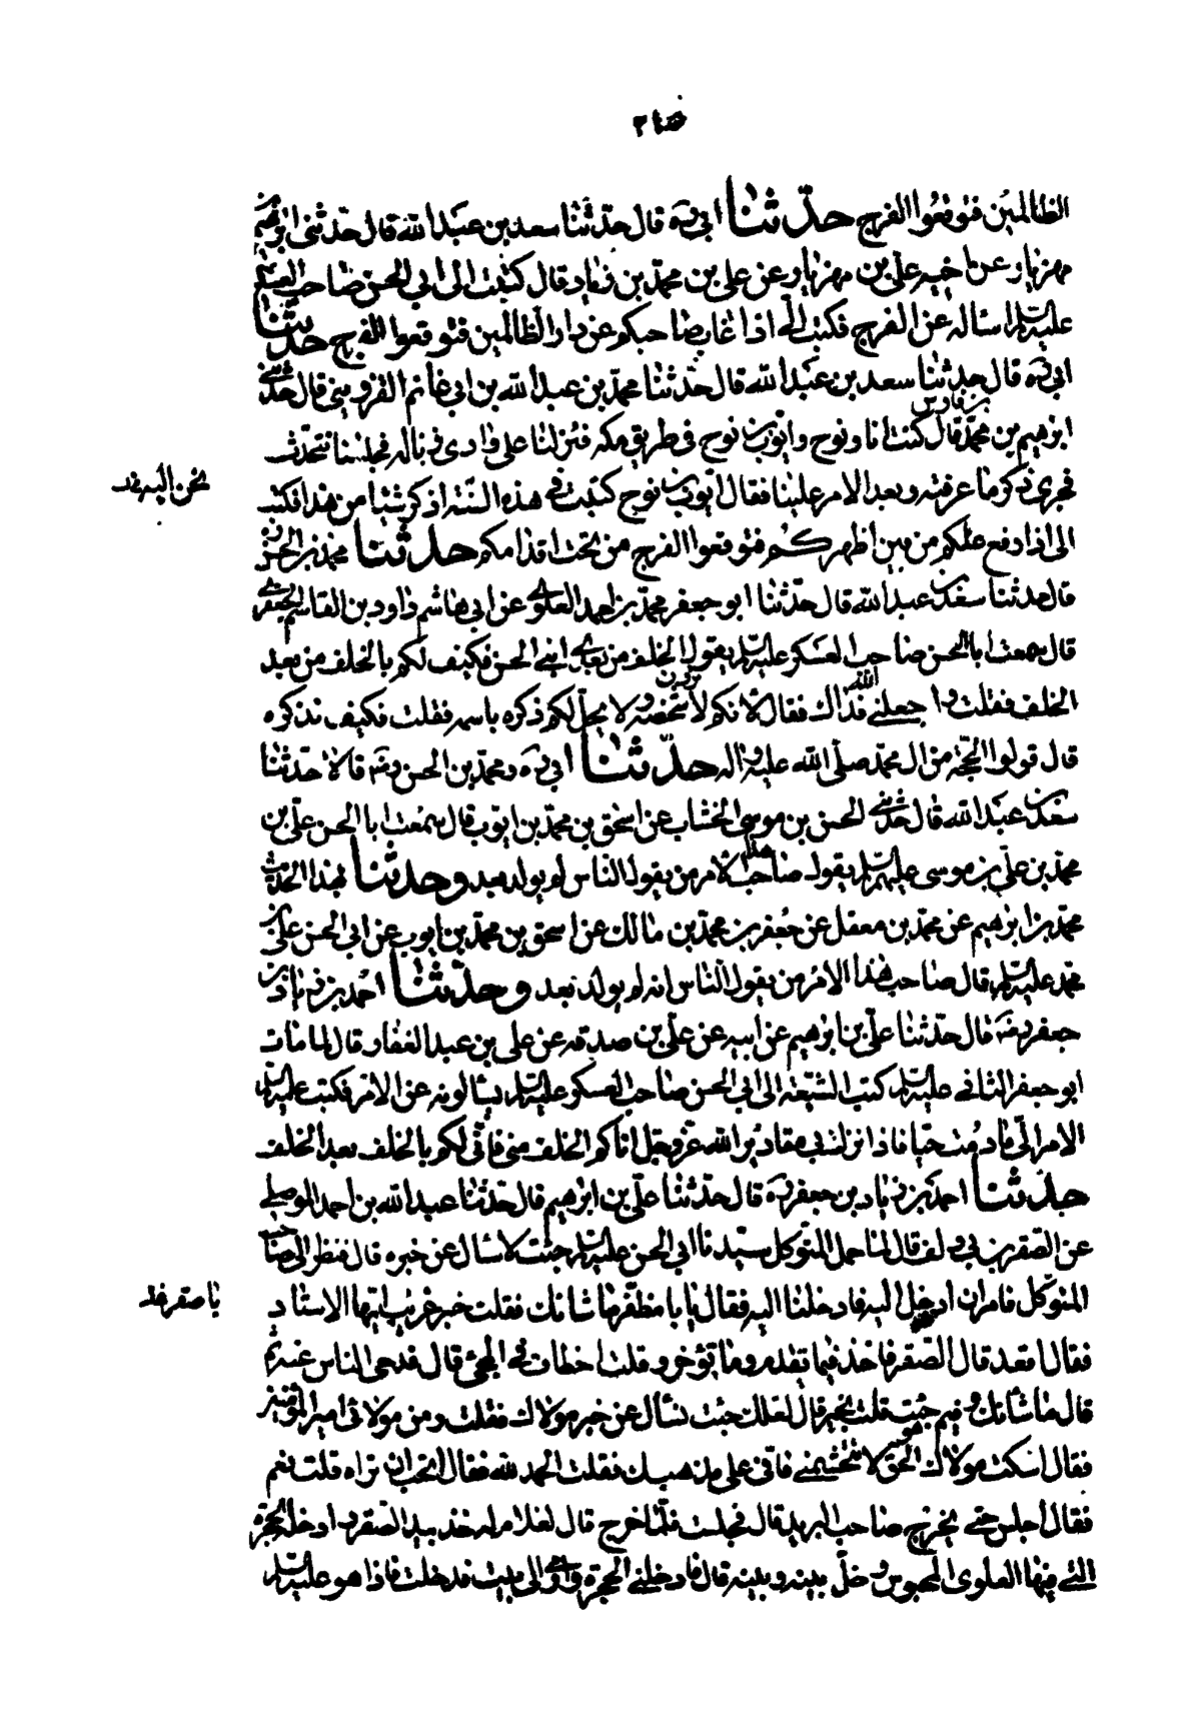 الظالمين فتوقعوا الفرج حدّثنا ابي ره قال حدّثنا سعد بن عبد الله قال حدّثنى ابرهيم بن
مهزيار عن اخيه علي بن مهزيار عن علي بن محمّد بن زياد قال كتبت الى ابي الحسن صاحب العسكر
عليه السلم اساله عن الفرج فكتب الىّ اذا غاب صاحبكم عن دار الظالمين فتوقعوا الفرج حدّثنا
ابي ره قال حدثنا سعد بن عبد الله قال حدثنا محمّد بن عبد الله بن ابي غانم القزويني قال حدّثني
ابرهيم بن محمّد بن فارس قال كنت انا ونوح وايّوب بن نوح في طريق مكه فنزلنا على وادى زباله فجلسنا نتحدّث
فجرى ذكر ما نحن اليه عرفته وبعد الامر علينا فقال ايّوب بن نوح كتبت في هذه السّنة اذكر شيئا من هذا فكتب
الى اذا رفع علمكم من بين اظهركم فتوقعوا الفرج من تحت اقدامكم حدثنا محمّد بن الحسن
قال حدثنا سعد بن عبد الله قال حدّثنا ابو جعفر محمّد بن احمد العلوي عن ابي هاشم داود بن القاسم الجعفري
قال سمعت ابا الحسن صاحب العسكر عليه السلم يقول الخلف من بعدى ابني الحسن فكيف لكم بالخلف من بعد
الخلف فقلت ولم جعلني الله فداك فقال لانكم لا ترون شخصه ولا يحلّ لكم ذكره باسمه فقلت فكيف نذكره
قال قولوا الحجّة من ال محمّد صلّى الله عليه واله حدّثنا ابي ره ومحمّد بن الحسن رضه قالا حدّثنا
سعد بن عبد الله قال حدّثني الحسن بن موسى الخشاب عن اسحق بن محمّد بن ايّوب قال سمعت ابا الحسن علي بن
محمّد بن علي بن موسى عليهم السلم يقول صاحب هذا الامر من يقول الناس لم يولد بعد وحدثنا بهذا الحديث
محمّد بن ابرهيم عن محمّد بن معقل عن جعفر بن محمّد بن مالك عن اسحق بن محمّد بن ايوب عن ابي الحسن علي بن
محمّد عليه السلم قال صاحب هذا الامر من يقول الناس انه لم يولد بعد وحدّثنا احمد بن زياد بن
جعفر رضه قال حدّثنا علي بن ابرهيم عن ابيه عن علي بن صدقه عن على بن عبد الغفار قال لما مات
ابو جعفر الثاني عليه السلم كتب الشيعة الى ابي الحسن صاحب العسكر عليه السلم يسالونه عن الامر فكتب عليه السلم
الامر الىّ ما دمت حيّا فاذا نزلت بي مقادير الله عزّ وجل اتاكم الخلف منى فانّى لكم بالخلف بعد الخلف
حدّثنا احمد بن زياد بن جعفر ره قال حدّثنا علي بن ابرهيم قال حدّثنا عبد الله بن احمد الموصلي
عن الصقر بن ابى دلف قال لما حمل المتوكل سيّدنا ابي الحسن عليه السلم جئت لاسال عن خبره قال فنظر الى حاجب
المتوكل فامر ان ادخل اليه فادخلنا اليه فقال يا با مظفّر ما شانك فقلت خير غريب ايّها الاستاد
فقال اقعد قال الصّقر فاخذ فيما تقدّم وما تؤخر وقلت اخطات في المجئ قال فدحى الناس عنه ثم
قال ما شانك وفيم جئت قلت بخير قال لعلك جئت تسال عن خبر مولاك فقلت ومن مولائى امير المؤمنين
فقال اسكت مولاك هو الحق لا تحتشمني فانى على مذهبك فقلت الحمد لله فقال اتحب ان تراه قلت نعم
فقال اجلس حتى يخرج صاحب البريد قال فجلست فلمّا خرج قال لغلام له خذ بيد الصقر وادخله الحجرة
الّتي فيها العلوى المحبوس وخلّ بينه وبينه قال فادخلني الحجرة واومى الى بيت فدخلت فاذا هو عليه السلم
نحن اليه خد
يا صقر خد